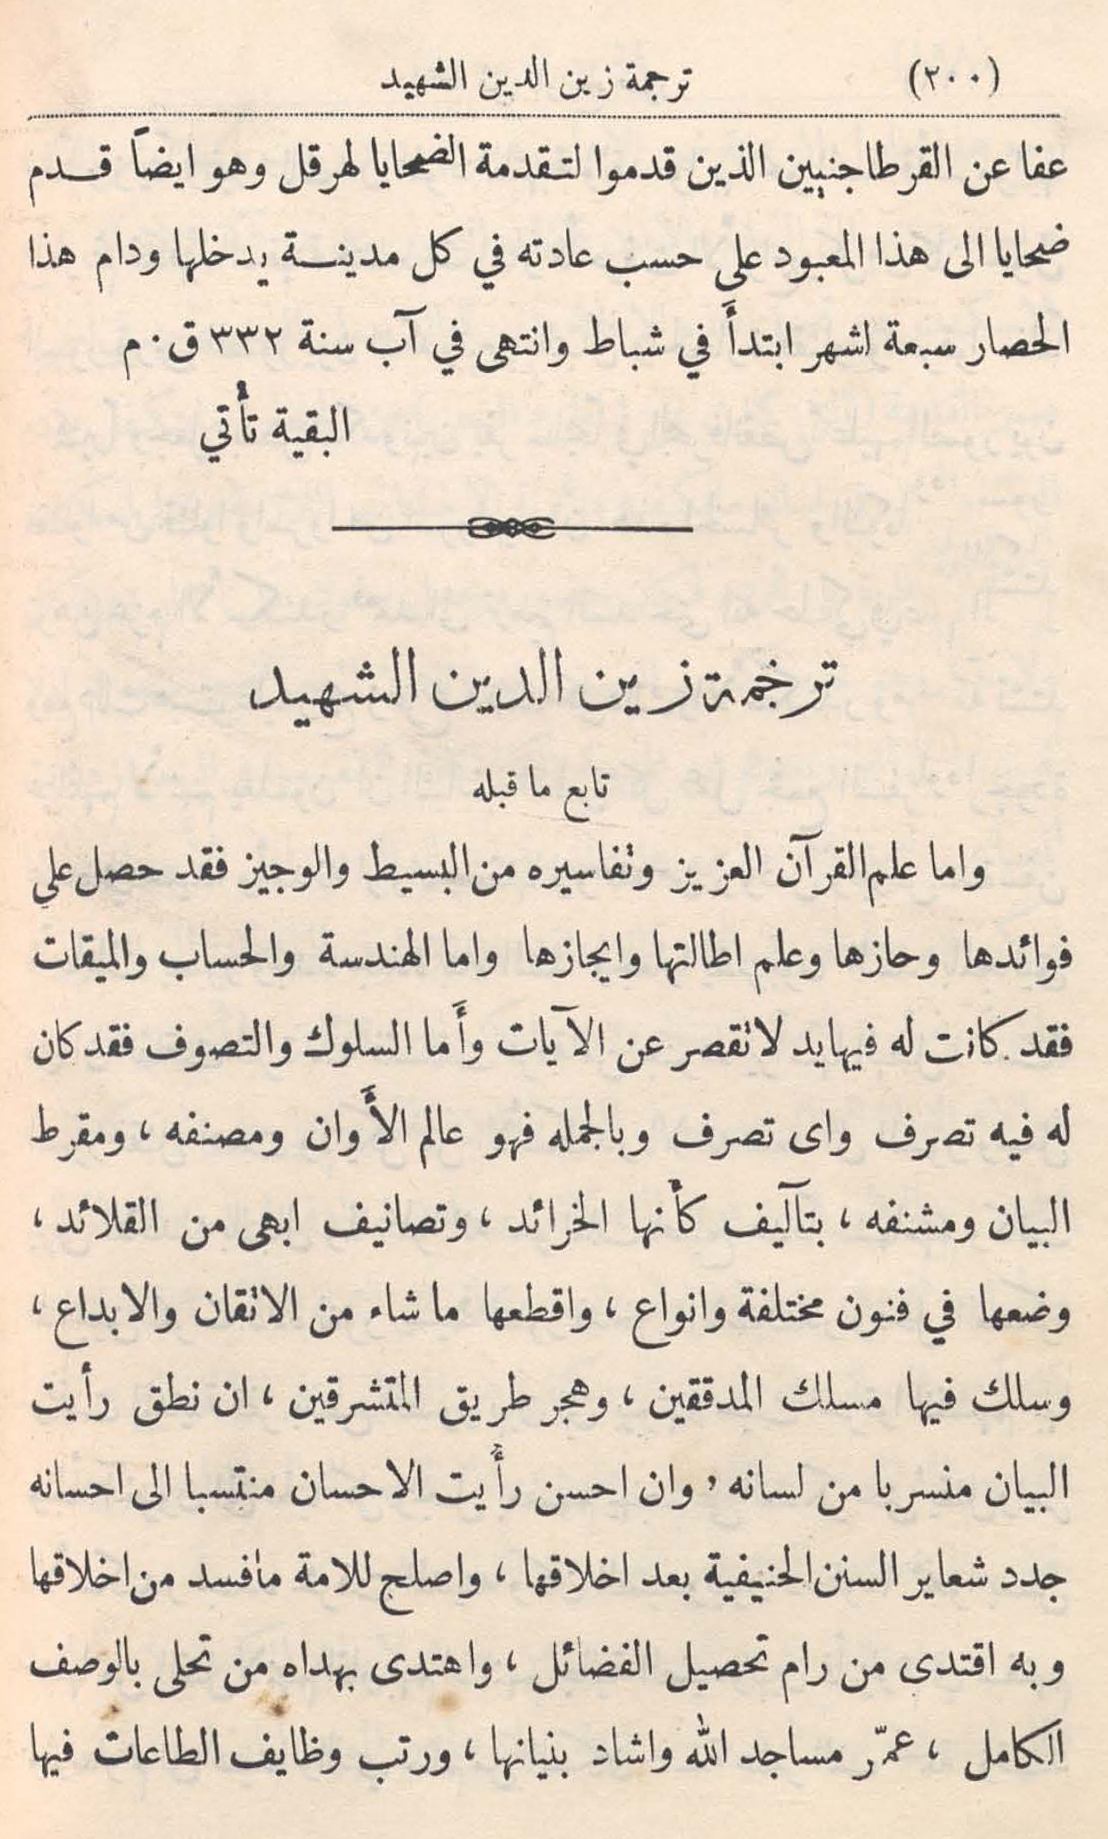 (٢٠٠) ترجمة زين الدين الشهيد
عفا عن القرطاجنيين الذين قدموا لتقدمة الضحايا لهرقل وهو ايضاً قدم
ضحايا الى هذا المعبود على حسب عادته في كل مدينة يدخلها ودام هذا
الحصار سبعة اشهر ابتدأَ في شباط وانتهى في آب سنة ٣٣٢ ق٠م
البقية تأْتي
ترجمة زين الدين الشهيد
تابع ما قبله
واما علم القرآن العزيز وتفاسيره من البسيط والوجيز فقد حصل على
فوائدها وحازها وعلم اطالتها وايجازها واما الهندسة والحساب والميقات
فقد كانت له فيها يد لا تقصر عن الآيات وأَما السلوك والتصوف فقد كان
له فيه تصرف واى تصرف وبالجمله فهو عالم الأَوان ومصنفه ، ومقرط
البيان ومشنفه ، بتآليف كأَنها الخرائد ، وتصانيف ابهى من القلائد ،
وضعها في فنون مختلفة وانواع ، واقطعها ما شاء من الاتقان والابداع ،
وسلك فيها مسلك المدققين ، وهجر طريق المتشرقين ، ان نطق رأيت
البيان منسربا من لسانه , وان احسن رأَيت الاحسان منتسبا الى احسانه
جدد شعاير السنن الحنيفية بعد اخلاقها ، واصلح للامة ما فسد من اخلاقها
وبه اقتدى من رام تحصيل الفضائل ، واهتدى بهداه من تحلى بالوصف
الكامل ، عمّر مساجد الله واشاد بنيانها ، ورتب وظايف الطاعات فيها